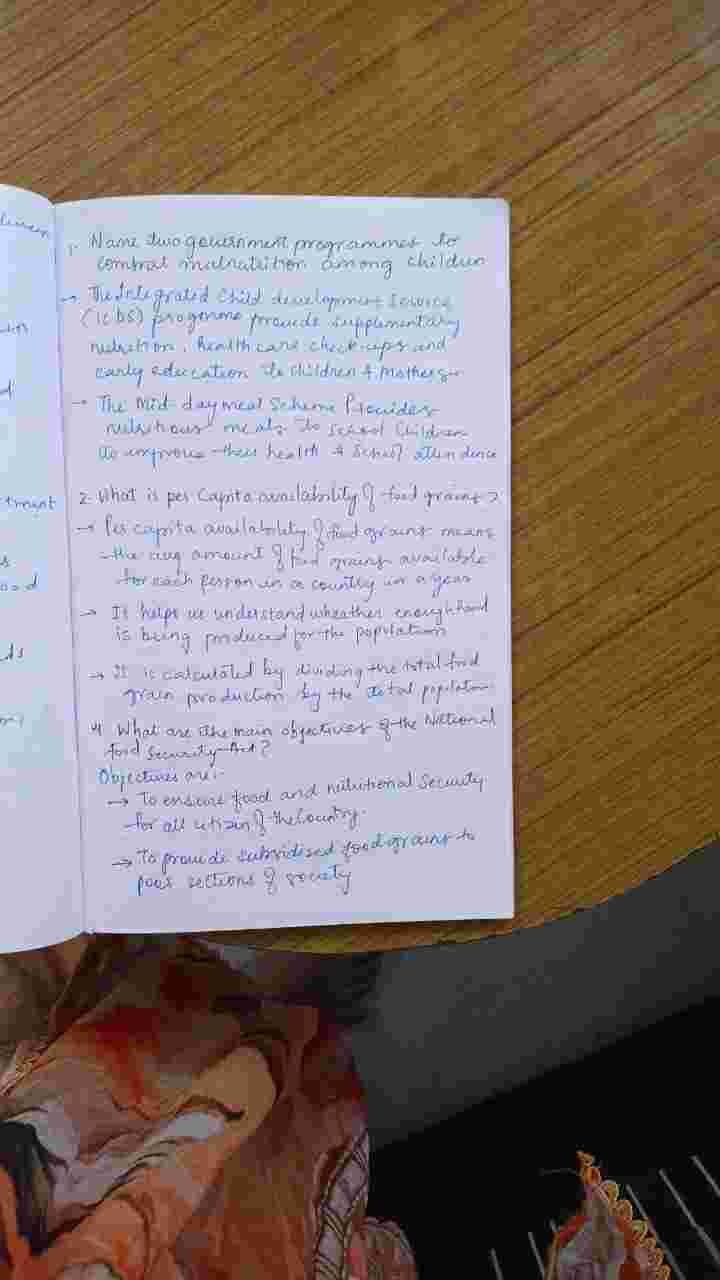 1. Name two government programmes to
combat malnutrition among children
→ The Integrated Child development Service
(ICDS) progrmme provide supplementary
nutrition, health care check-ups and
early education to children & Mothers
→ The Mid-day meal Scheme Provides
nutritious meals to school Children
to improve their health & School attendence
2. What is per Capita availability of food grains?
→ Per capita availability of food grains means
the avg amount of food grains available
for each person in a country in a year
→ It helps us understand wheather enough food
is being produced for the population
→ It is calculated by dividing the total food
grain production by the total population
4. What are the main objectives of the National
food Security Act?
Objectives are:-
→ To ensure food and nutritional Security
for all citizen of the Country.
→ To provide subsidised food grains to
poor sections of society
tment
ood